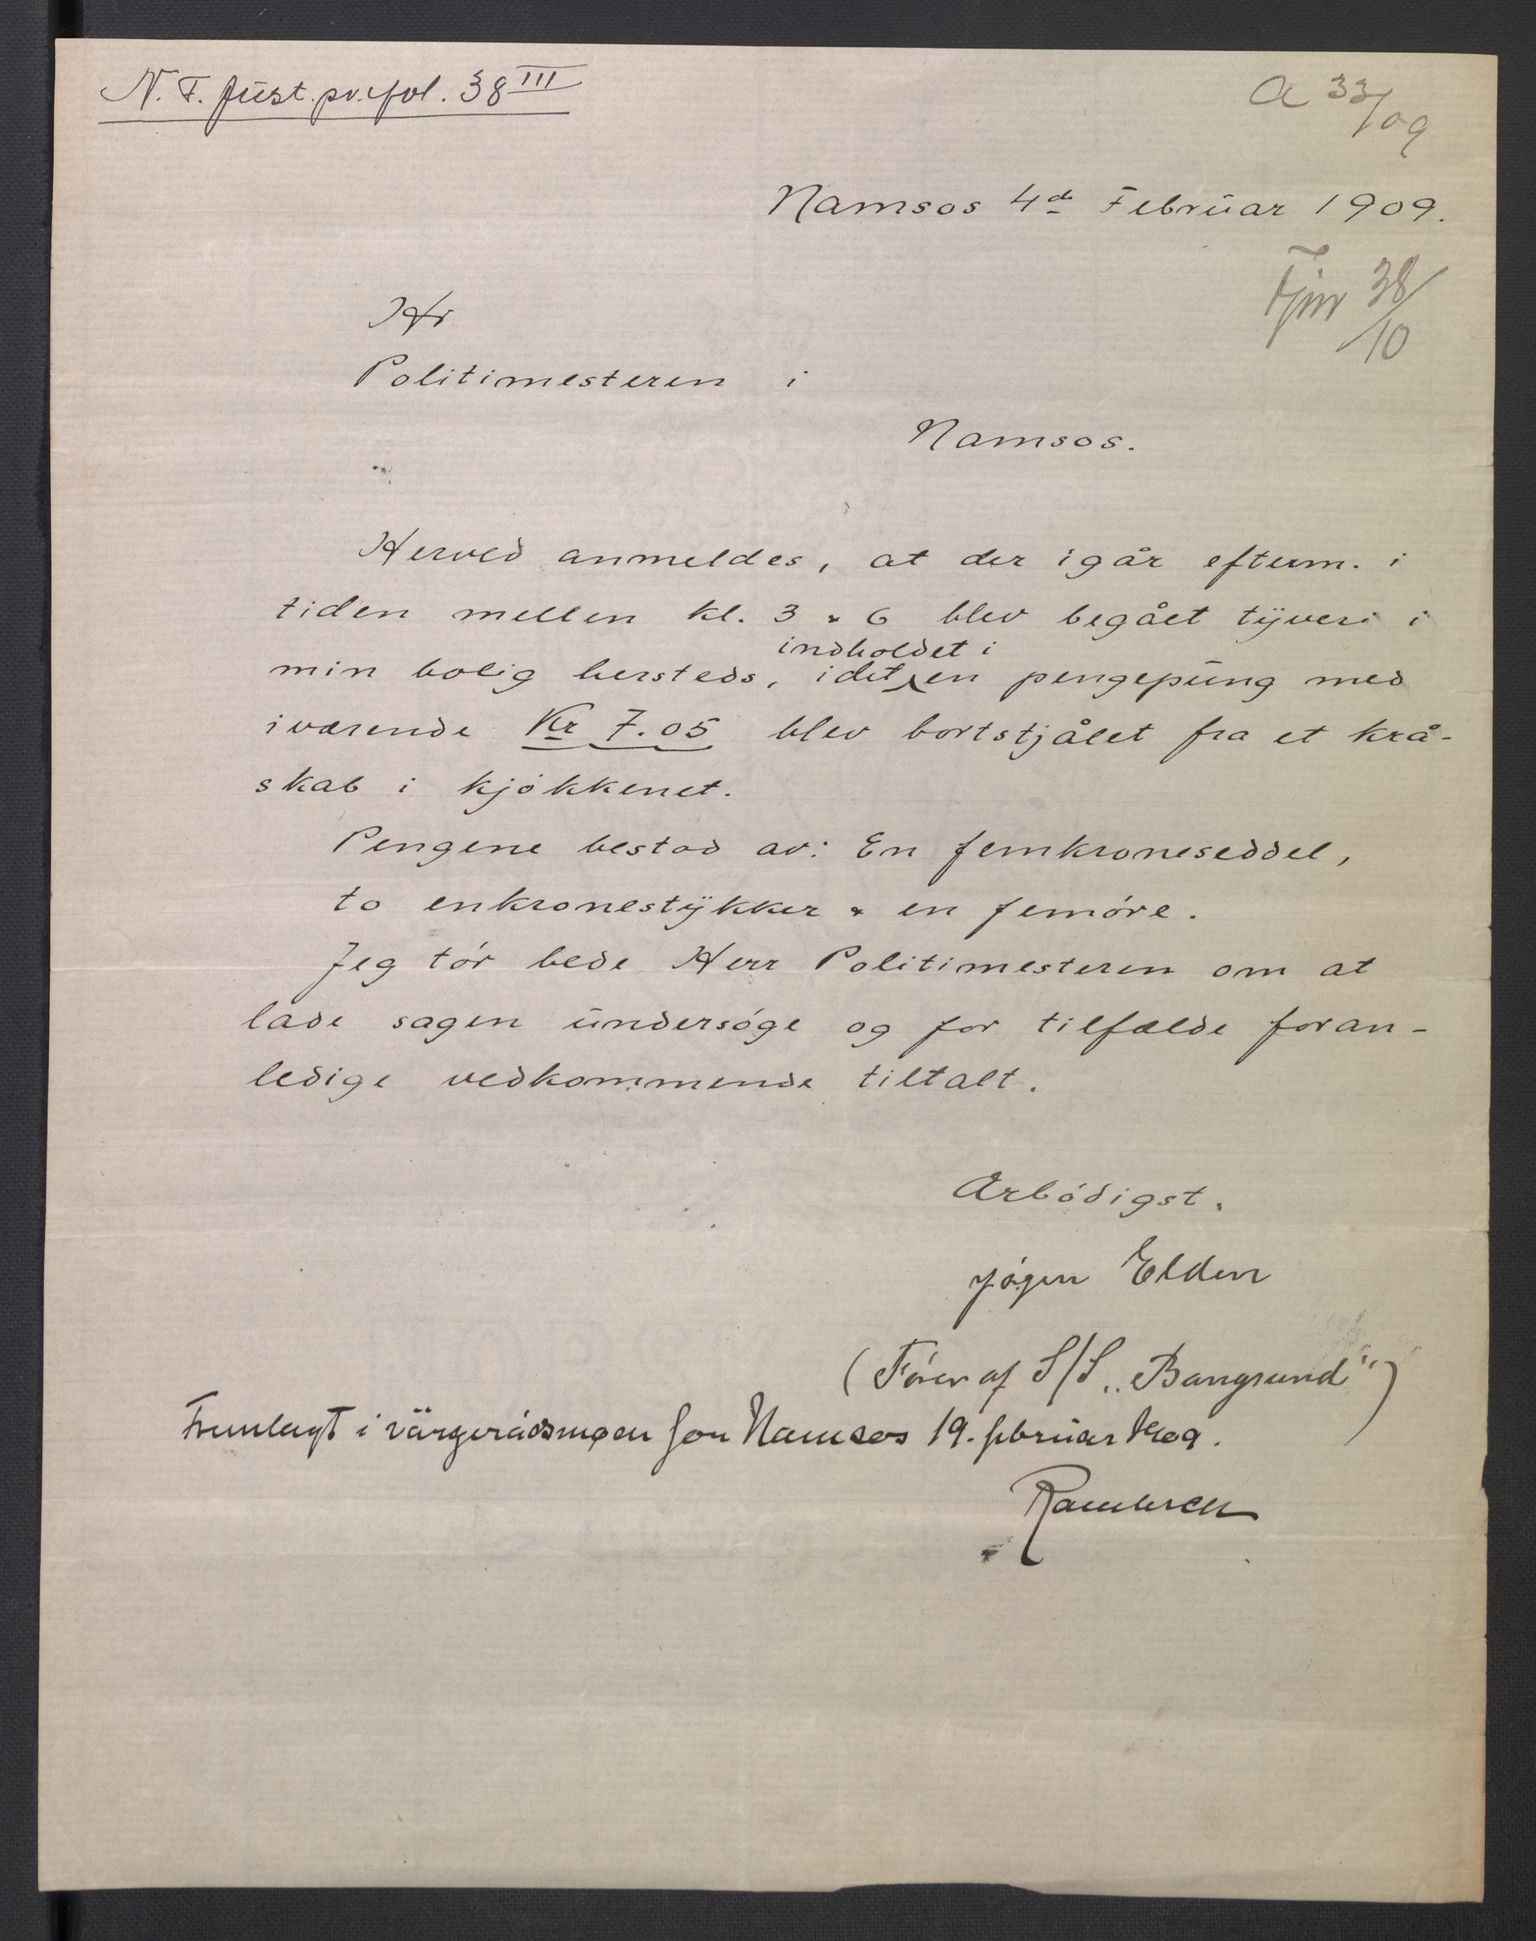 N. T. just. pr. fol. 38 III
A 33/09
Namsos 4de Februar 1909.
38/10
Hr
Politimesteren i
Namsos.
Herved anmeldes, at der igår efterm. i
tiden mellem kl. 3 & 6 blev begået tyveri i
indholdet i
min bolig hersteds, idet en pengepung med
iværende Kr 7.05 blev bortstjålet fra et krå-
skab i kjøkkenet.
Pengene bestod av: En femkroneseddel,
to enkronestykker & en femøre.
Jeg tør bede Herr Politimesteren om at
lade sagen undersøge og for tilfælde foran-
ledige vedkommende tiltalt.
Ærbødigst.
Jørgen Elden
(Fører af S/S „Bangsund")
Fremlagt i værgerådsmøde for Namsos 19. februar 1909.